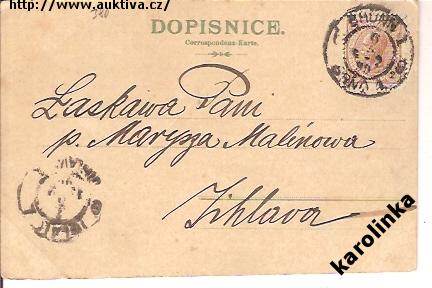 www.auktiva.cz/
320
DOPISNICE.
Correspondenz-Karte.
BRÜNN
Łaskawa Pani
p. Marysza Malinowa
Jihlava
karolinka